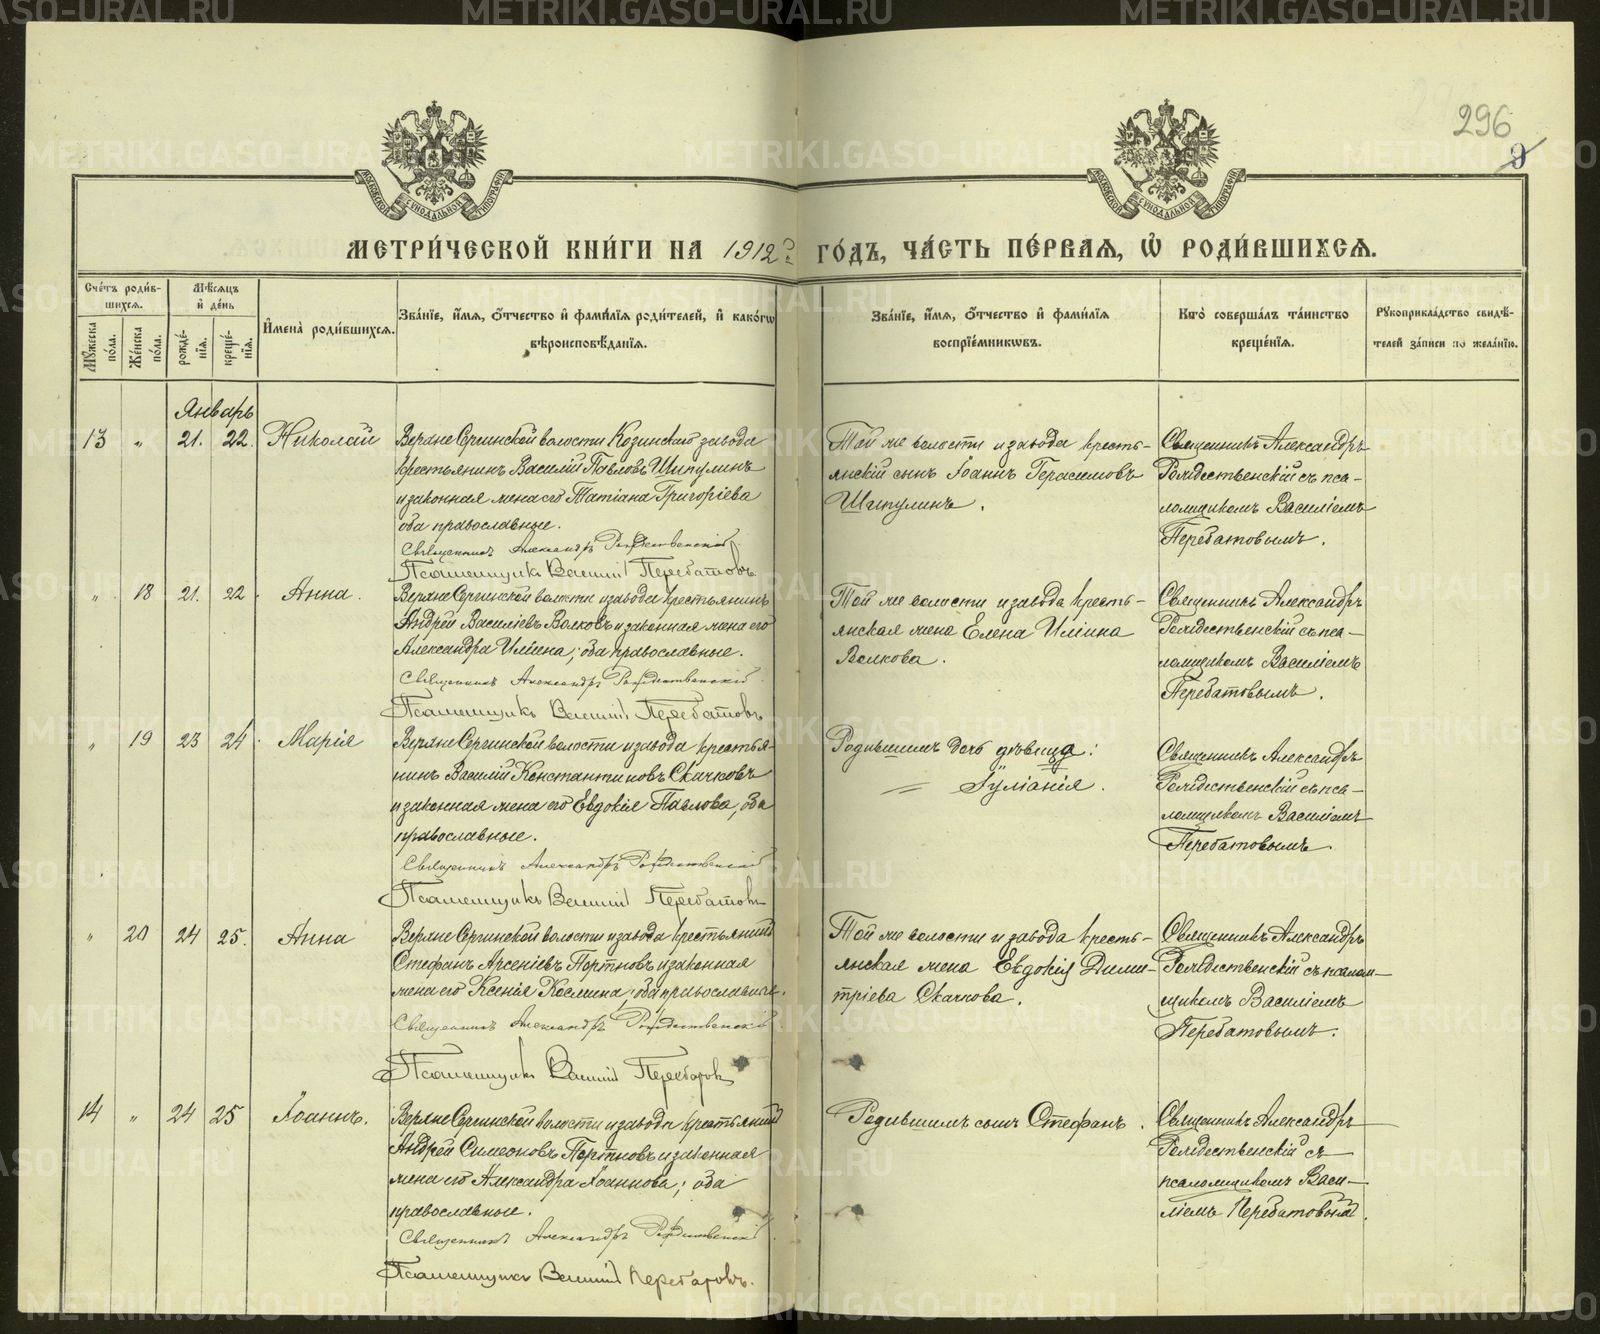 METRIKI.GASO-URAL.RU
296
9
МОСКОВСКОЙ СѴНОДАЛЬНОЙ ТИПОГРАФІИ
МОСКОВСКОЙ СѴНОДАЛЬНОЙ ТИПОГРАФІИ
МЕТРИ́ЧЕСКОЙ КНИ́ГИ НА 1912 ГО́ДЪ, ЧА́СТЬ ПЕ́РВАЯ, Ѡ҆ РОДИ́ВШИХСЯ.
Сче́тъ роди́в-
шихся.
Мѣ́сяцъ
и҆ де́нь
Мꙋ́жеска по́ла.
Же́нска по́ла.
рожде́-нія.
креще́-нія.
И҆мена̀ роди́вшихся.
Зва́ніе, и҆́мя, о҆́тчество и҆ фами́лія роди́телей, и҆ како́гѡ
вѣроисповѣ́данія.
Зва́ніе, и҆́мя, о҆́тчество и҆ фами́лія
воспріе́мникѡвъ.
Кто̀ соверша́лъ та́инство
креще́нія.
Рꙋкоприкла́дство свидѣ́-
телей за́писи по жела́нію.
Январь
13 " 21. 22. Николай
Верхне Сергинской волости Козинскаго завода
крестьянинъ Василій Павловъ Шипулинъ
и законная жена его Татіана Григоріева
оба православные.
Священникъ Александръ Рождественскій
Псаломщикъ Василій Перебатовъ
Той же волости и завода кресть-
янскій сынъ Іоаннъ Герасимовъ
Шипулинъ.
Священникъ Александръ
Рождественскій съ пса-
ломщикомъ Василіемъ
Перебатовымъ.
" 18 21. 22. Анна.
Верхне Сергинской волости и завода крестьянинъ
Андрей Василіевъ Волковъ и законная жена его
Александра Иліина; оба православные.
Священникъ Александръ Рождественскій
Псаломщикъ Василій Перебатовъ
Той же волости и завода кресть-
янская жена Елена Иліина
Волкова.
Священникъ Александръ
Рождественскій съ пса-
ломщикомъ Василіемъ
Перебатовымъ.
" 19 23 24. Марія
Верхне Сергинской волости и завода крестья-
нинъ Василій Константиновъ Скачковъ
и законная жена его Евдокія Павлова, оба
православные.
Священникъ Александръ Рождественскій
Псаломщикъ Василій Перебатовъ
Родившимъ дочь дѣвица:
Іуліанія.
Священникъ Александръ
Рождественскій съ пса-
ломщикомъ Василіемъ
Перебатовымъ.
" 20 24 25. Анна
Верхне Сергинской волости и завода крестьянинъ
Стефанъ Арсеніевъ Портновъ и законная
жена его Ксенія Космина; оба православные.
Священникъ Александръ Рождественскій
Псаломщикъ Василій Перебатовъ
Той же волости и завода кресть-
янская жена Евдокія Дими-
тріева Скачкова.
Священникъ Александръ
Рождественскій съ псалом-
щикомъ Василіемъ
Перебатовымъ.
14 " 24 25 Іоаннъ.
Верхне Сергинской волости и завода крестьянинъ
Андрей Симеоновъ Портновъ и законная
жена его Александра Іоаннова; оба
православные.
Священникъ Александръ Рождественскій
Псаломщикъ Василій Перебатовъ.
Родившимъ сынъ Стефанъ.
Священникъ Александръ
Рождественскій съ
псаломщикомъ Васи-
ліемъ Перебатовымъ.